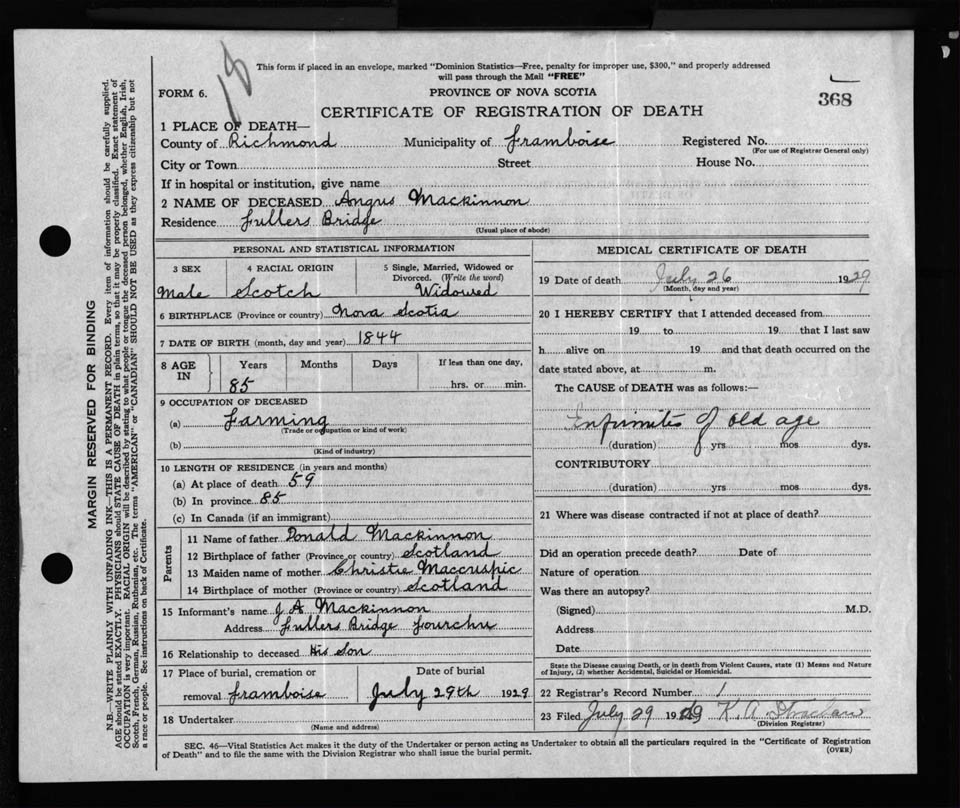 18
This form if placed in an envelope, marked "Dominion Statistics—Free, penalty for improper use, $300," and properly addressed
will pass through the Mail "FREE"
FORM 6.
PROVINCE OF NOVA SCOTIA
368
CERTIFICATE OF REGISTRATION OF DEATH
1 PLACE OF DEATH—
County of Richmond Municipality of Framboise Registered No.
(For use of Registrar General only)
City or Town Street House No.
If in hospital or institution, give name
2 NAME OF DECEASED Angus Mackinnon
Residence Fullers Bridge
(Usual place of abode)
PERSONAL AND STATISTICAL INFORMATION
3 SEX 4 RACIAL ORIGIN 5 Single, Married, Widowed or
Divorced. (Write the word)
Male Scotch Widowed
6 BIRTHPLACE (Province or country) Nova Scotia
7 DATE OF BIRTH (month, day and year) 1844
8 AGE IN Years Months Days If less than one day,
85 hrs. or min.
9 OCCUPATION OF DECEASED
(a) Farming
(Trade or occupation or kind of work)
(b)
(Kind of industry)
10 LENGTH OF RESIDENCE (in years and months)
(a) At place of death 59
(b) In province 85
(c) In Canada (if an immigrant)
Parents
11 Name of father Donald Mackinnon
12 Birthplace of father (Province or country) Scotland
13 Maiden name of mother Christie Maccuspic
14 Birthplace of mother (Province or country) Scotland
15 Informant's name J A Mackinnon
Address Fullers Bridge Fourchu
16 Relationship to deceased His Son
17 Place of burial, cremation or Date of burial
removal Framboise July 29th 1929
18 Undertaker
(Name and address)
MEDICAL CERTIFICATE OF DEATH
19 Date of death July 26 1929
(Month, day and year)
20 I HEREBY CERTIFY that I attended deceased from
19 to 19 that I last saw
h alive on 19 and that death occurred on the
date stated above, at m.
The CAUSE of DEATH was as follows:—
Infirmites of old age
(duration) yrs mos dys.
CONTRIBUTORY
(duration) yrs mos dys.
21 Where was disease contracted if not at place of death?
Did an operation precede death? Date of
Nature of operation
Was there an autopsy?
(Signed) M.D.
Address
Date
State the Disease causing Death, or in death from Violent Causes, state (1) Means and Nature
of Injury, (2) whether Accidental, Suicidal or Homicidal.
22 Registrar's Record Number 1
23 Filed July 29 1929 K. A.
(Division Registrar)
SEC. 46—Vital Statistics Act makes it the duty of the Undertaker or person acting as Undertaker to obtain all the particulars required in the "Certificate of Registration
of Death" and to file the same with the Division Registrar who shall issue the burial permit.
(OVER)
MARGIN RESERVED FOR BINDING
N.B.—WRITE PLAINLY WITH UNFADING INK—THIS IS A PERMANENT RECORD. Every item of information should be carefully supplied.
AGE should be stated EXACTLY. PHYSICIANS should STATE CAUSE OF DEATH in plain terms, so that it may be properly classified. Exact statement of
OCCUPATION is very important. RACIAL ORIGIN will be described by stating to what people or tongue the deceased person belonged, whether English, Irish,
Scotch, French, German, Russian, Ruthenian, etc. The terms "AMERICAN" or "CANADIAN" SHOULD NOT BE USED as they express citizenship but not
a race or people. See instructions on back of Certificate.